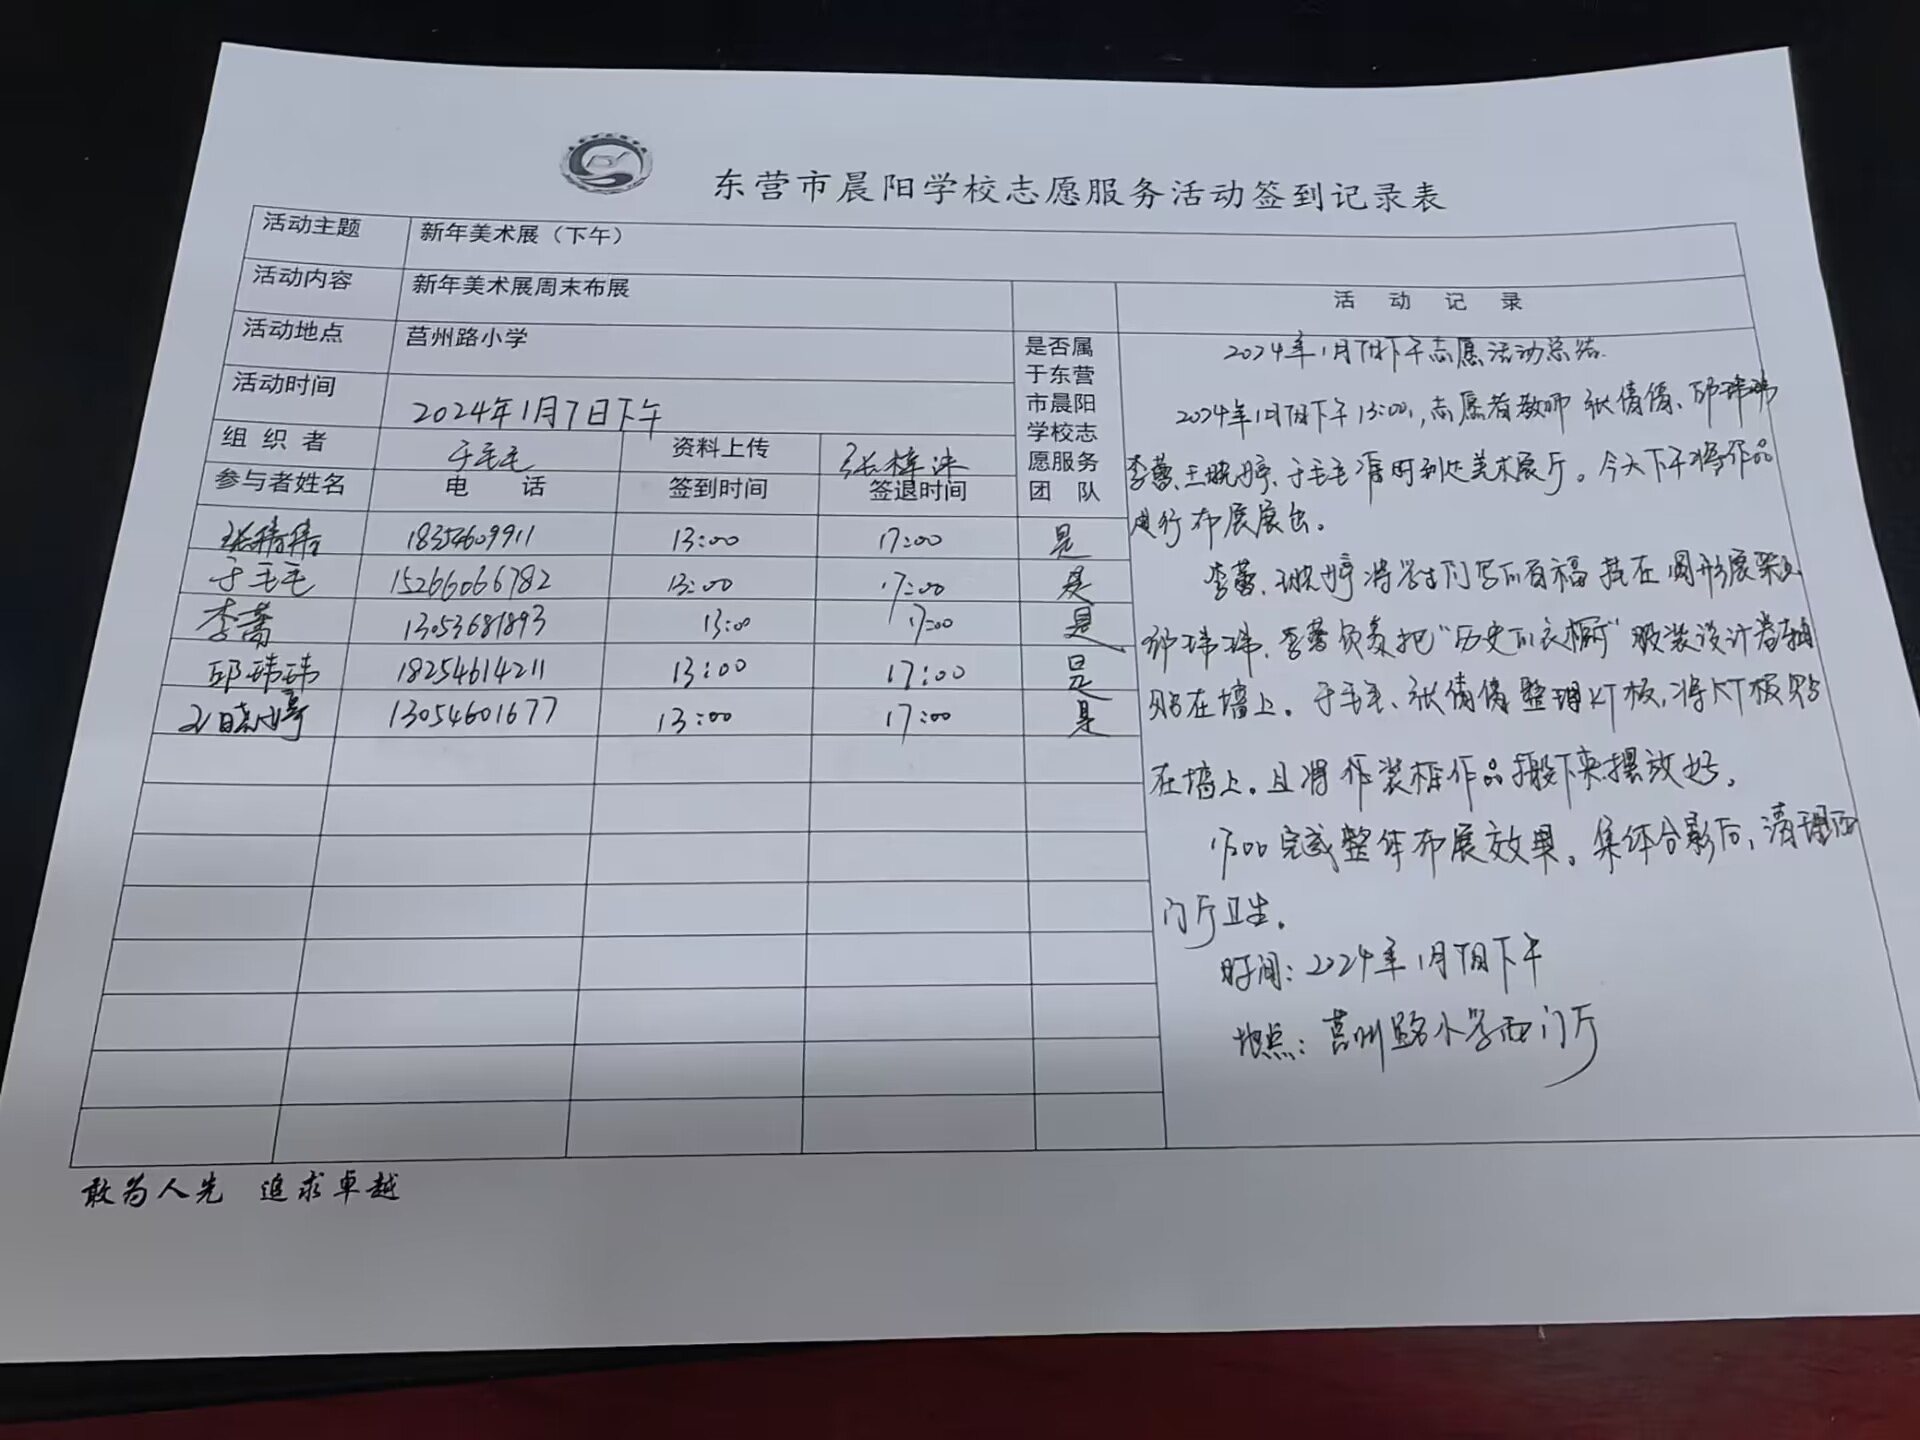 东营市晨阳学校志愿服务活动签到记录表
活动主题 新年美术展（下午）
活动内容 新年美术展周末布展
活动地点 莒州路小学
活动时间 2024年1月7日下午
组织者 于毛毛 资料上传 张梓沐
参与者姓名 电 话 签到时间 签退时间
是否属
于东营
市晨阳
学校志
愿服务
团 队
张倩倩 18354609911 13:00 17:00 是
于毛毛 15266066782 13:00 17:00 是
李蕾 13053681893 13:00 17:00 是
邱玮玮 18254614211 13:00 17:00 是
王晓婷 13054601677 13:00 17:00 是
活 动 记 录
2024年1月7日下午志愿活动总结.
2024年1月7日下午13:00,志愿者教师 张倩倩、邱玮玮
李蕾、王晓婷、于毛毛准时到达美术展厅。今天下午将作品
进行布展展出。
李蕾、王晓婷将学生们写的百福 挂在圆形展架上
邱玮玮、李蕾负责把“历史的衣橱”服装设计卷轴
贴在墙上。于毛毛、张倩倩整理KT板,将KT板贴
在墙上。且将作装框作品搬下来摆放好。
17:00完成整体布展效果。集体合影后,清理西
门厅卫生。
时间:2024年1月7日下午
地点:莒州路小学西门厅
敢为人先 追求卓越